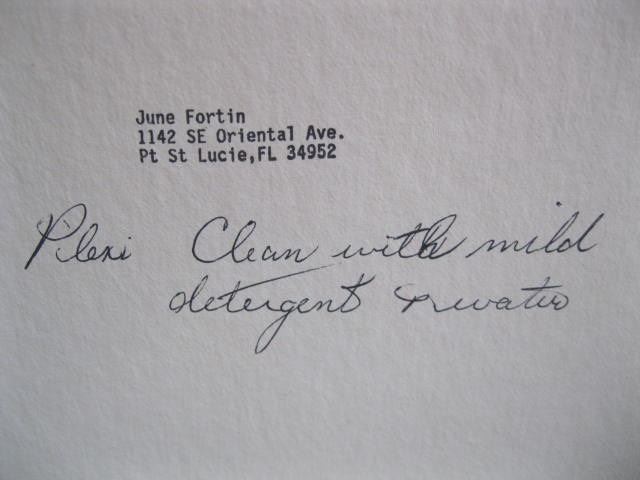 June Fortin
1142 SE Oriental Ave.
Pt St Lucie,FL 34952
Plexi Clean with mild
detergent & water